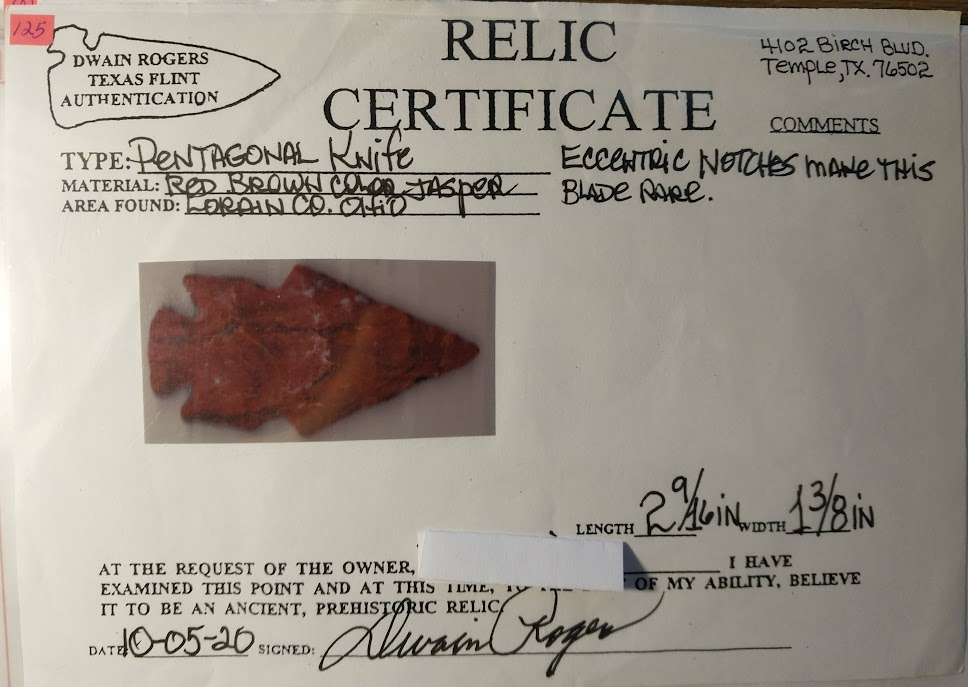 125
DWAIN ROGERS
TEXAS FLINT
AUTHENTICATION
RELIC
CERTIFICATE
4102 BIRCH BLVD.
Temple, TX. 76502
COMMENTS
TYPE: PENTAGONAL Knife
MATERIAL: RED BROWN COLOR JASPER
AREA FOUND: LORAIN CO. OHIO
ECCENTRIC NOTCHES MAKE THIS
BLADE RARE.
LENGTH 2 9/16 IN WIDTH 1 3/8 IN
AT THE REQUEST OF THE OWNER, I HAVE
EXAMINED THIS POINT AND AT THIS TIME, TO OF MY ABILITY, BELIEVE
IT TO BE AN ANCIENT, PREHISTORIC RELIC.
DATE 10-05-20 SIGNED: Dwain Rogers